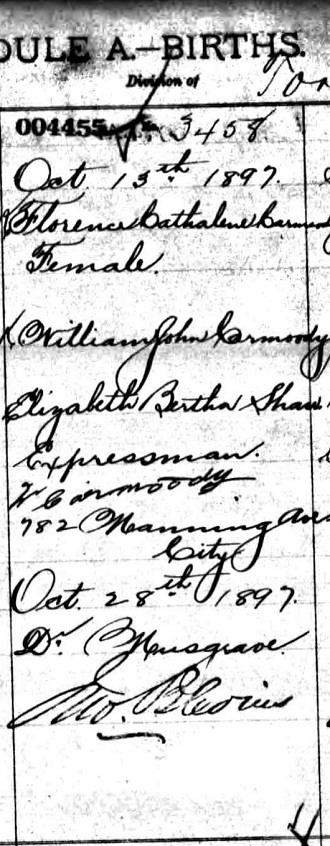 DULE A.—BIRTHS.
Division of
004455 3458
Oct. 13th 1897.
Florence Cathalene
Female.
William John Carmoody
Elizabeth Bertha Shaw
Expressman.
W Carmoody
782 Manning Ave
City
Oct. 28th 1897.
Dr. Musgrave.